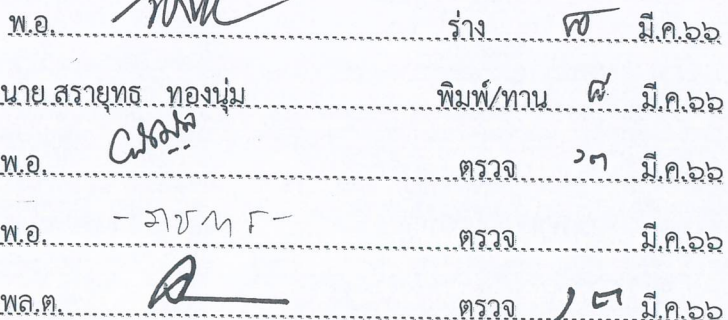 พ.อ. ร่าง มี.ค.๖๖
นาย สรายุทธ ทองนุ่ม พิมพ์/ทาน ๘ มี.ค.๖๖
พ.อ. ตรวจ มี.ค.๖๖
พ.อ. - ราชการ - ตรวจ มี.ค.๖๖
พล.ต. ตรวจ มี.ค.๖๖